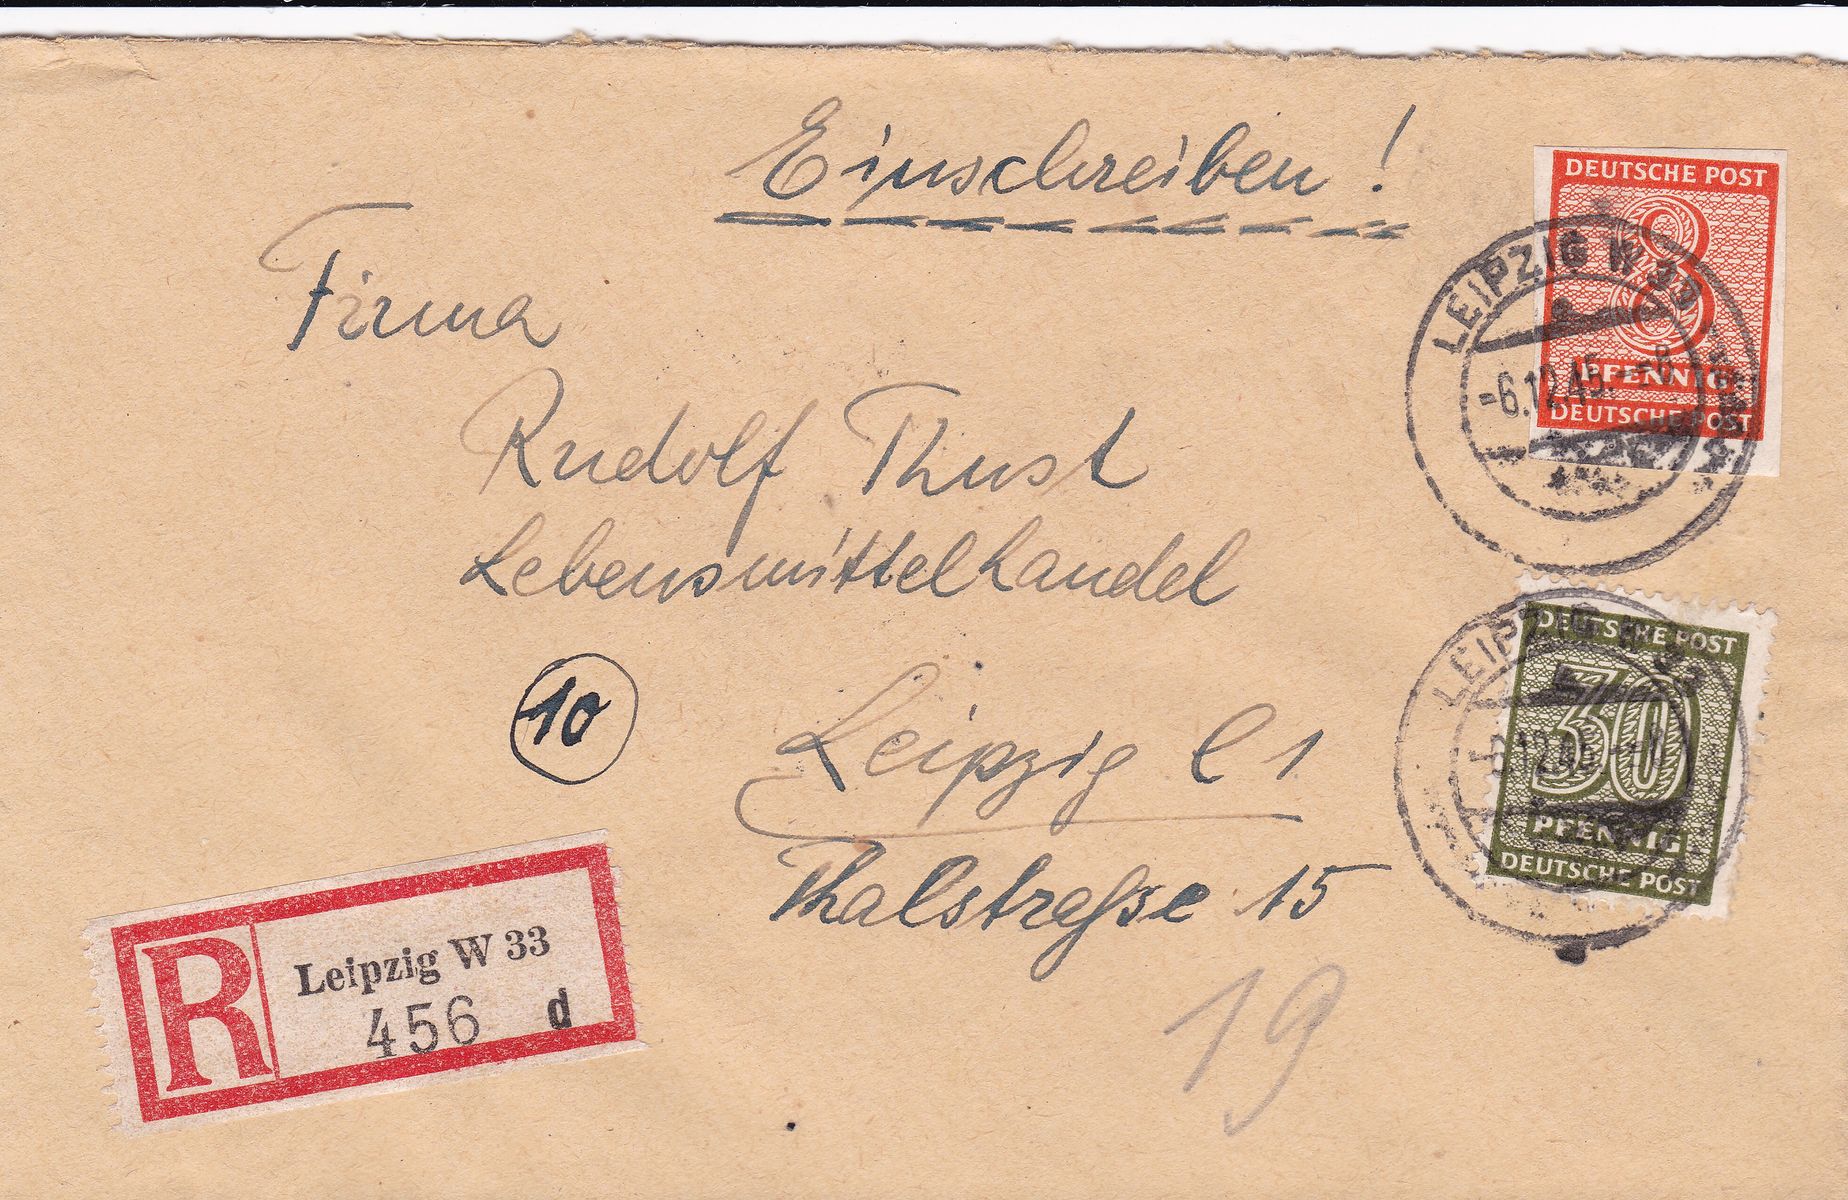 Einschreiben!
Firma
Rudolf Thust
Lebensmittelhandel
10
Leipzig C 1
Thalstraße 15
19
R
Leipzig W 33
456 d
DEUTSCHE POST
8
PFENNIG
DEUTSCHE POST
LEIPZIG W 33
-6.12.45.--8
DEUTSCHE POST
30
PFENNIG
DEUTSCHE POST
LEIPZIG W
12.45